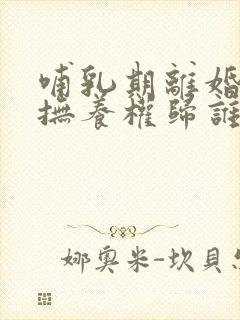 哺乳期離婚
撫養權歸誰
娜奧米-坎貝